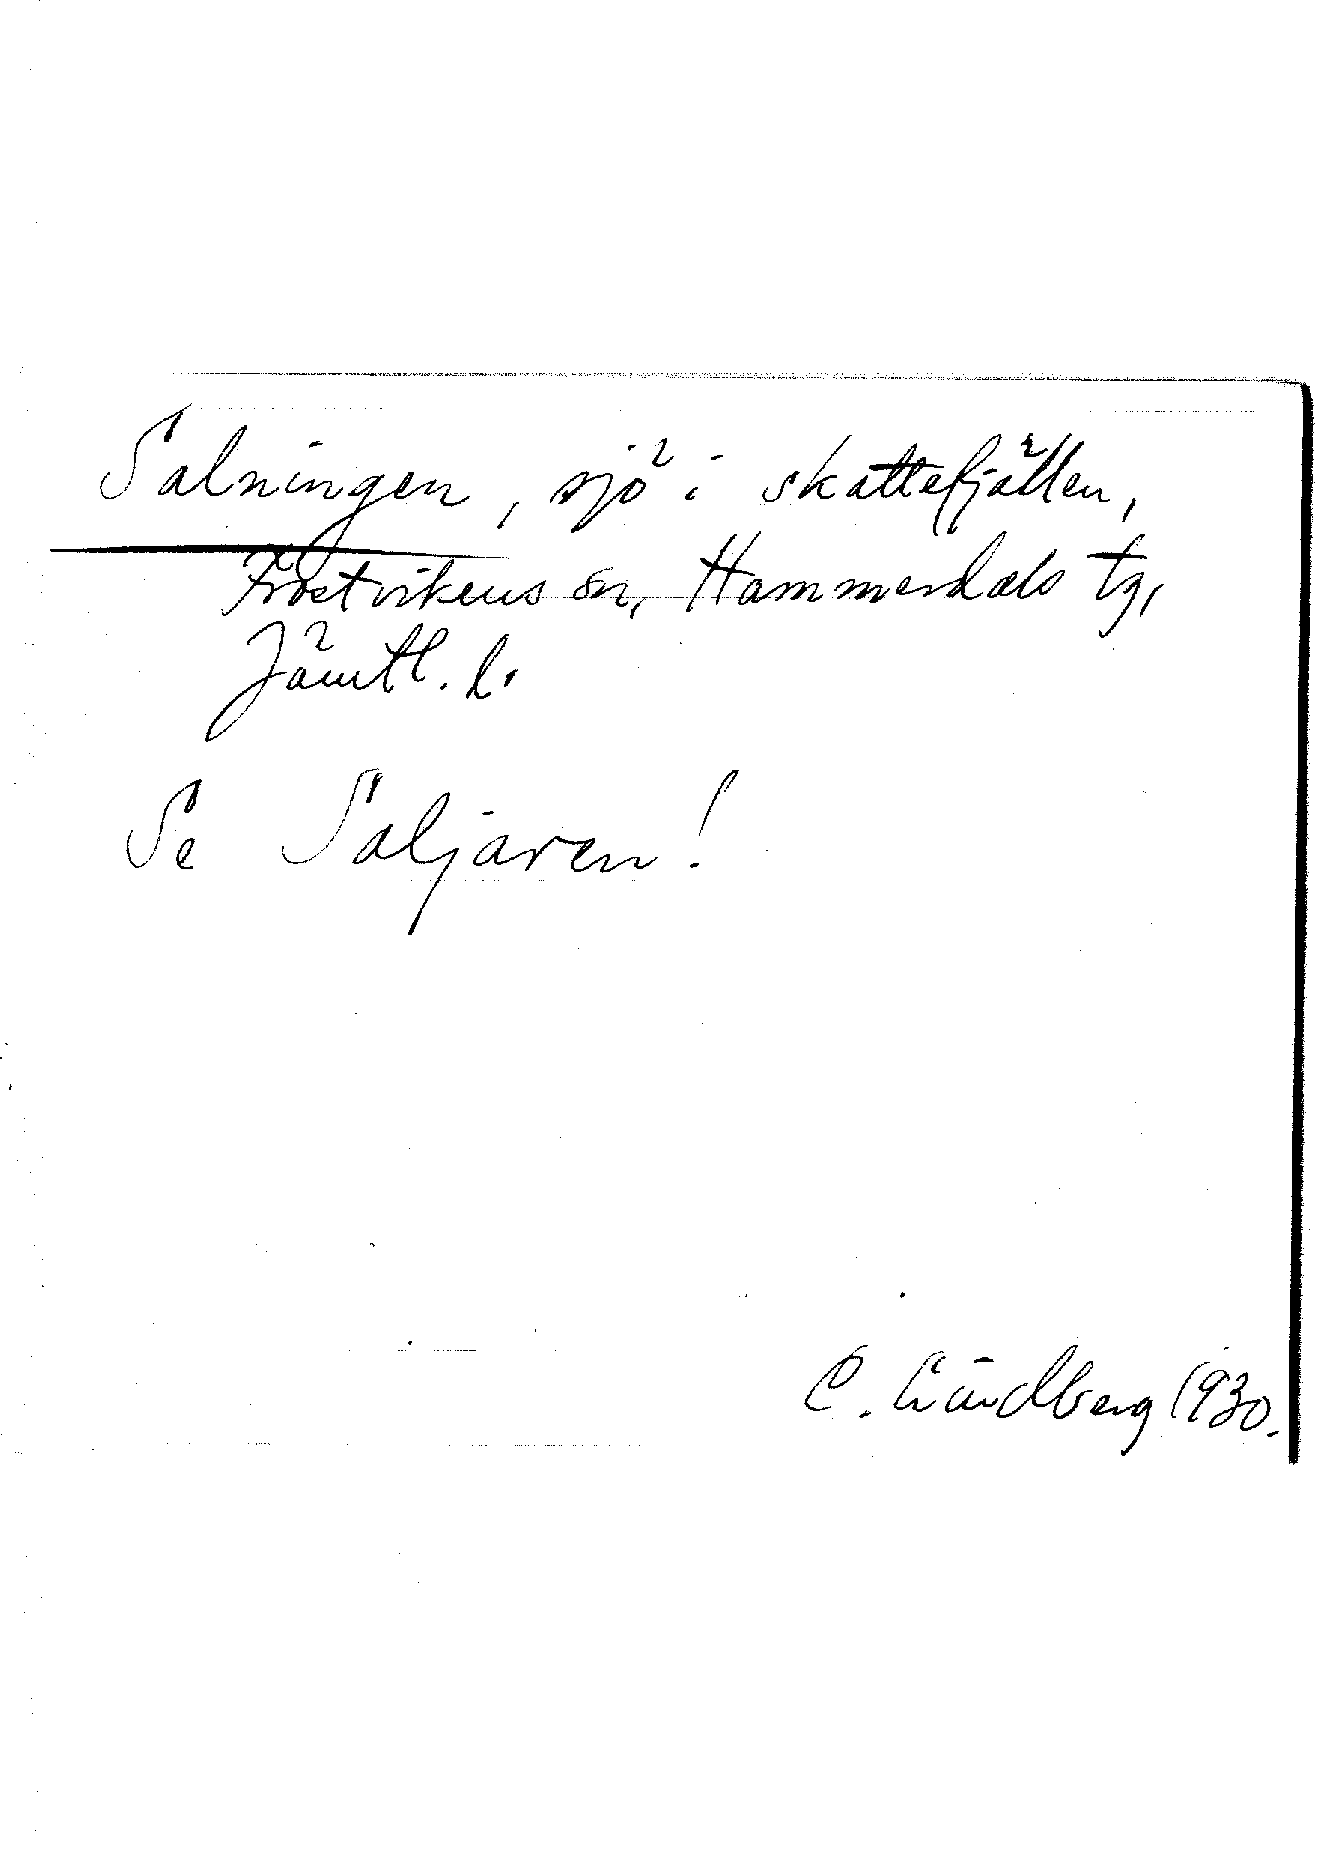 Salningen, sjö i skattefjällen,
Frostvikens sn, Hammerdals tg,
Jämtl. l.
Se Saljaren!
C. Lundberg 1930.